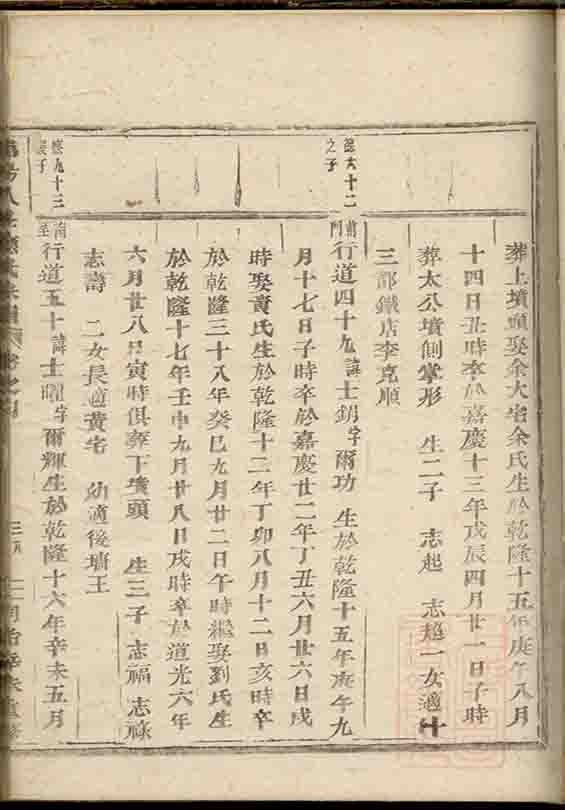 葬上墳頭娶余大宅余氏生於乾隆十五年庚午八月
十四日丑時卒於嘉慶十三年戊辰四月廿一日子時
葬太公墳側掌形 生二子 志起 志趙一女適十
三都鐵店李克順
德六十二之子
前門行道四十九諱士鈅字爾功 生於乾隆十五年庚午九
月十七日子時卒於嘉慶廿二年丁丑六月廿六日戌
時娶黃氏生於乾隆十二年丁卯八月十二日亥時卒
於乾隆三十八年癸巳九月廿二日午時繼娶劉氏生
於乾隆十七年壬申九月廿八日戌時卒於道光六年
六月廿八日寅時俱葬下墳頭 生三子 志福 志祿
志壽 二女長適黃宅 幼適後墻王
德九十三長子
南至行道五十諱士曜字爾輝生於乾隆十六年辛未五月
同治辛未重修